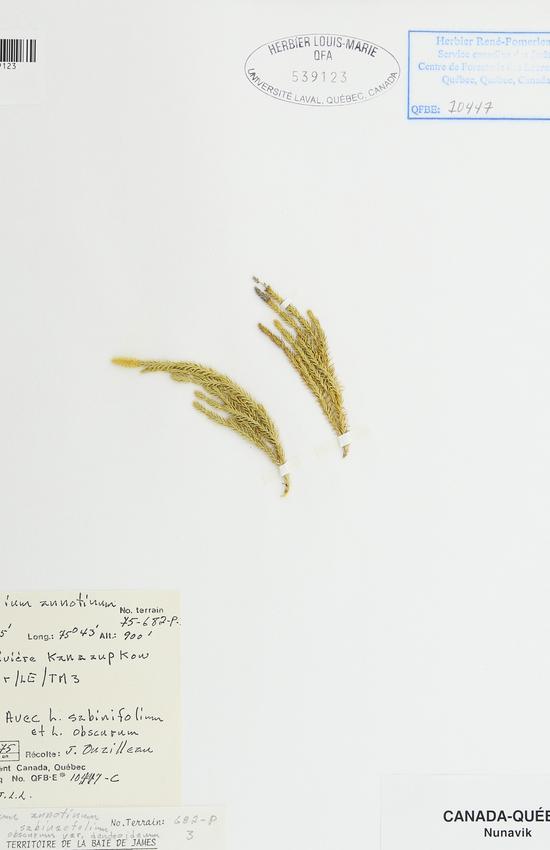 9123
HERBIER LOUIS-MARIE
QFA
539123
UNIVERSITÉ LAVAL, QUÉBEC, CANADA
Herbier René-Pomerlea
Service canadien des
Centre de Foresterie des
Québec, Québec, Canada
QFBE: 10447
ium annotinum
No. terrain
75-682-P.
5' Long.: 75° 43' Alt.: 900'
ivière Kanaaupkow
r/LE/TM3
Avec L. sabinifolium
et L. obscurum
75 Récolte: J. Ouzilleau
ent Canada, Québec
q No. QFB-E 10447-C
J.L.L.
annotinum
No. Terrain: 682-P
sabinaefolium
3
obscurum var. dendroideum
TERRITOIRE DE LA BAIE DE JAMES
CANADA-QUÉB
Nunavik